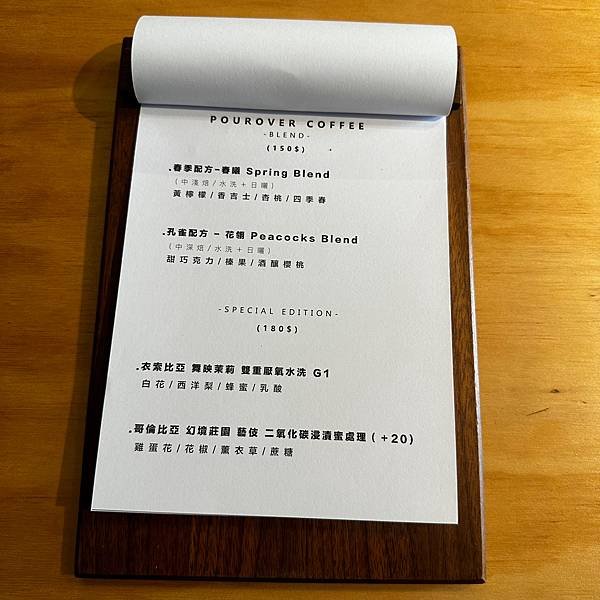 POUROVER COFFEE
-BLEND-
(150$)
.春季配方-春曦 Spring Blend
(中淺焙/水洗+日曬)
黃檸檬/香吉士/杏桃/四季春
.孔雀配方 - 花翎 Peacocks Blend
(中深焙/水洗+日曬)
甜巧克力/榛果/酒釀櫻桃
-SPECIAL EDITION-
(180$)
.衣索比亞 舞映茉莉 雙重厭氧水洗 G1
白花/西洋梨/蜂蜜/乳酸
.哥倫比亞 幻境莊園 藝伎 二氧化碳浸漬蜜處理 (+20)
雞蛋花/花椒/薰衣草/蔗糖